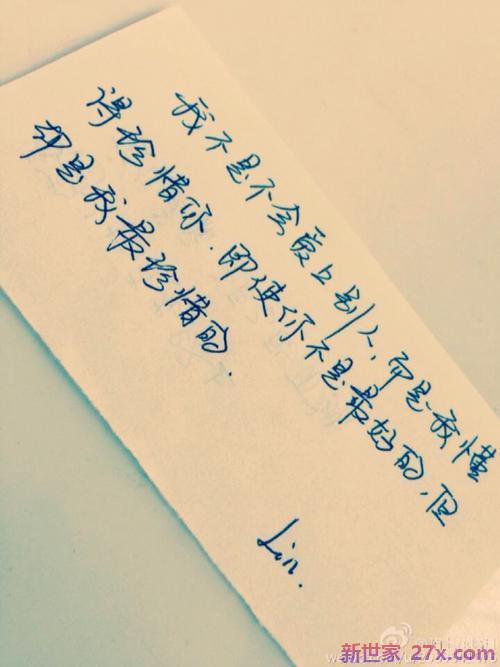 我不是不会爱上别人,而是我懂
得珍惜你.即使你不是最好的,但
却是我最珍惜的.
Lin.
新世家 27x.com